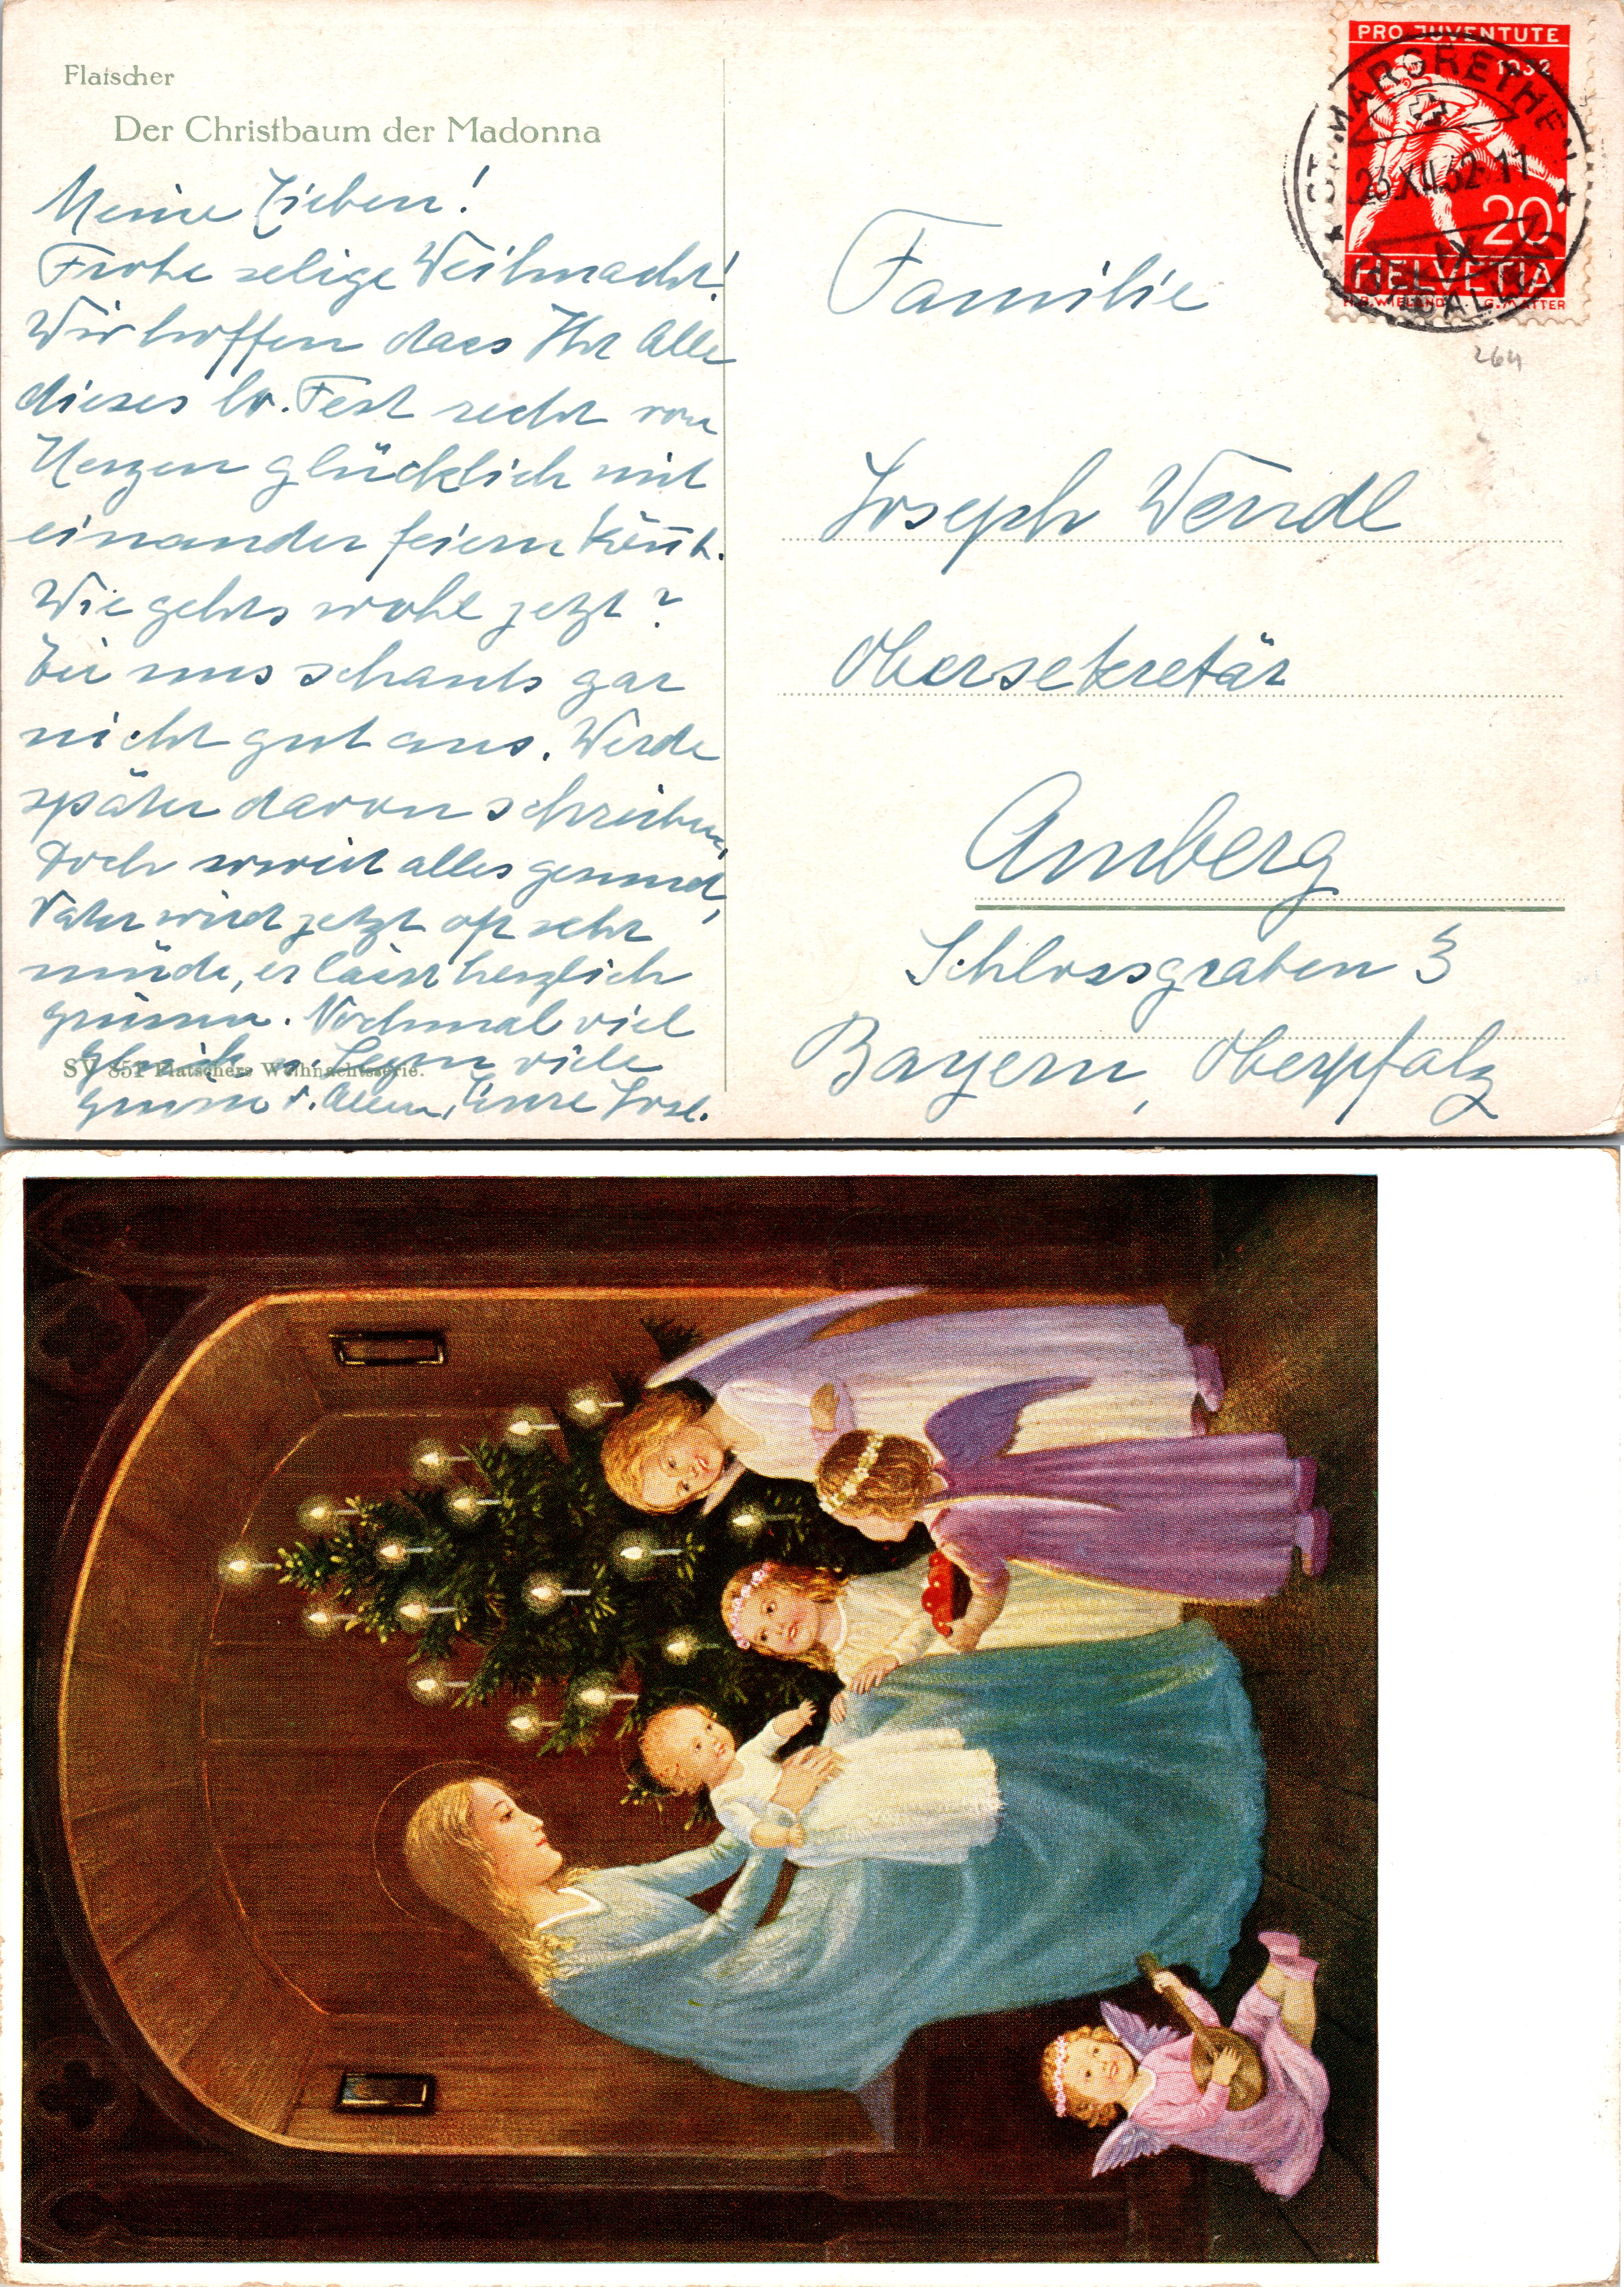 Flatscher
Der Christbaum der Madonna
Meine Lieben!
Frohe selige Weihnacht!
Wir hoffen dass Ihr Alle
dieses hr. Fest recht von
Herzen glücklich mit
einander feiern könnt.
Wie gehts wohl jetzt?
Bei uns schauts gar
nicht gut aus. Werde
später davon schreiben,
doch soweit alles gesund,
Vater wird jetzt oft sehr
müde, er lässt herzlich
grüssen. Nochmal viel
Glück u. Segen viele
SV 851 Flatschers Weihnachtsserie.
Grüsse v. Allen, Eure Jose.
PRO JUVENTUTE
1932
20
HELVETIA
ST. MARGRETHEN
23.XII.32-11
IX
264
Familie
Joseph Wendl
Obersekretär
Amberg
Schlossgraben 3
Bayern, Oberpfalz